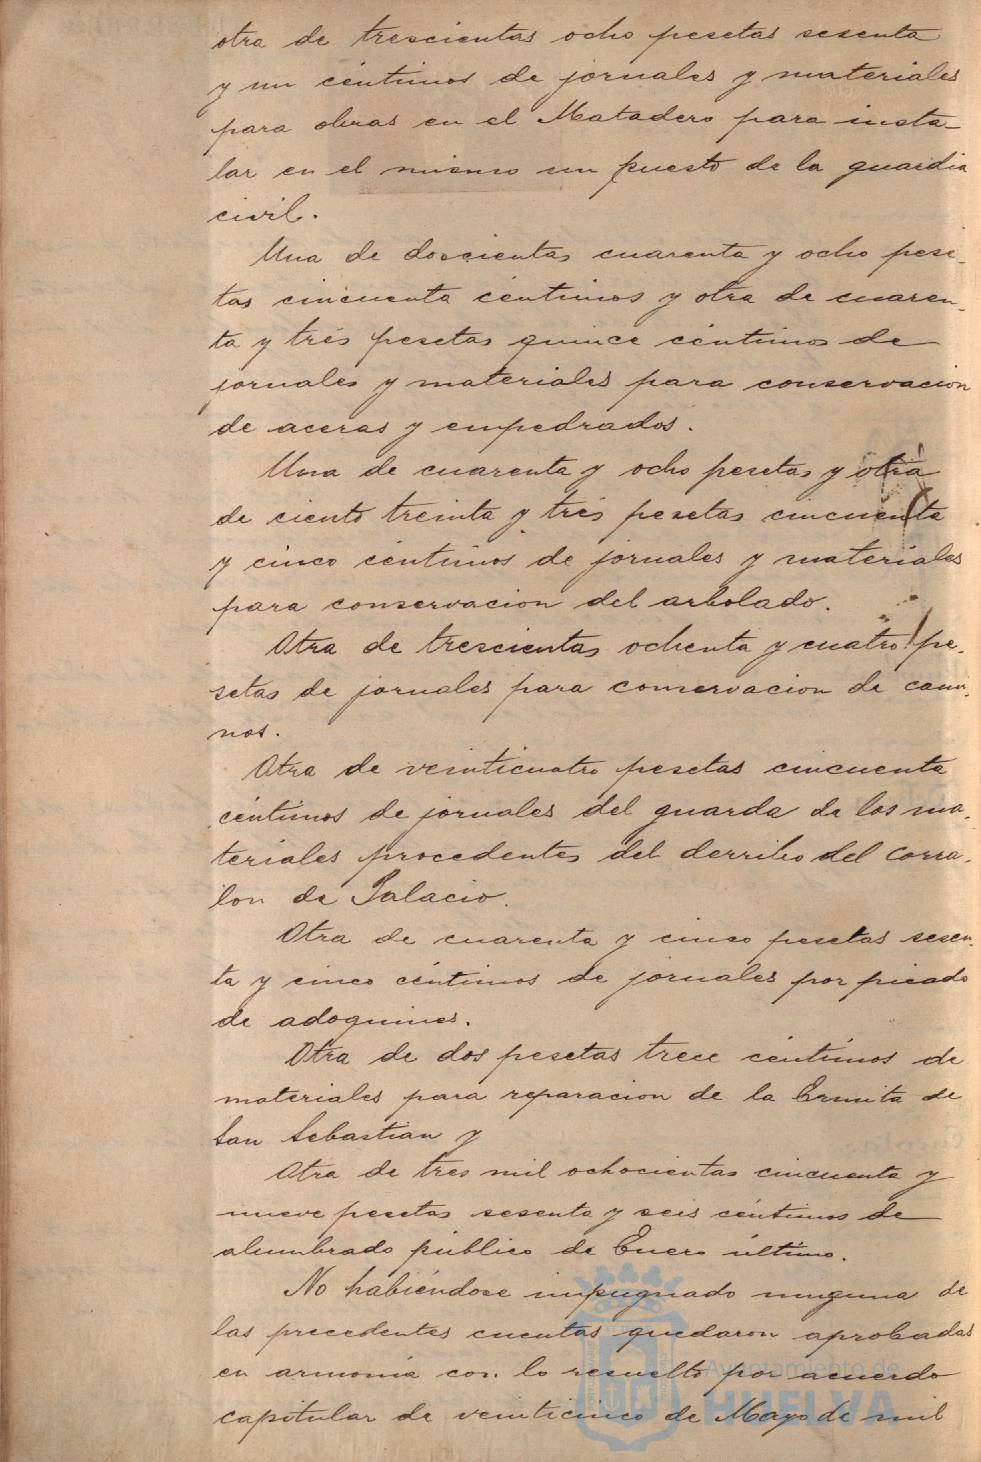 otra de trescientas ocho pesetas sesenta
y un céntimos de jornales y materiales
para obras en el Matadero para insta-
lar en el mismo un puesto de la guardia
civil.
Una de doscientas cuarenta y ocho pese-
tas cincuenta céntimos y otra de cuaren-
ta y tres pesetas quince céntimos de
jornales y materiales para conservacion
de aceras y empedrados.
Una de cuarenta y ocho pesetas y otra
de ciento treinta y tres pesetas cincuenta
y cinco céntimos de jornales y materiales
para conservacion del arbolado.
Otra de trescientas ochenta y cuatro pe-
setas de jornales para conservacion de cami-
nos.
Otra de veinticuatro pesetas cincuenta
céntimos de jornales del guarda de los ma-
teriales procedentes del derribo del Corra-
lon de Palacio.
Otra de cuarenta y cinco pesetas sesen-
ta y cinco céntimos de jornales por picado
de adoquines.
Otra de dos pesetas trece céntimos de
materiales para reparacion de la Ermita de
San Sebastian y
Otra de tres mil ochocientas cincuenta y
nueve pesetas sesenta y seis céntimos de
alumbrado público de Enero último.
No habiéndose impugnado ninguna de
las precedentes cuentas quedaron aprobadas
en armonía con lo resuelto por acuerdo
capitular de veinticinco de Mayo de mil
Ayuntamiento de
HUELVA